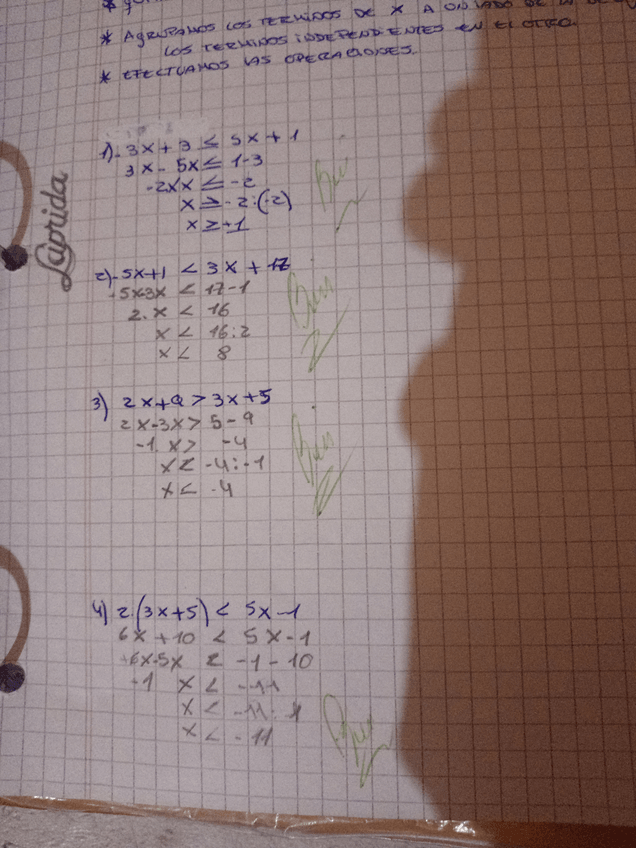 * AGRUPAMOS LOS TERMINOS DE X A UN LADO DE LA
LOS TERMINOS INDEPENDIENTES EN EL OTRO.
* EFECTUAMOS LAS OPERACIONES.
Laprida
1)- 3x + 3 ≤ 5x + 1
3x - 5x ≤ 1-3
-2xx ≤ -2
x ≥ -2:(-2)
x ≥ +1
Bien
2)- 5x+1 < 3x + 17
5x-3x < 17-1
2. x < 16
x < 16:2
x < 8
Bien
3) 2x+9 > 3x+5
2x-3x > 5-9
-1. x > -4
x < -4:-1
x < 4
Bien
4) 2.(3x+5) < 5x-1
6x + 10 < 5x-1
+6x-5x < -1-10
+1 x < -11
x < -11: 1
x < -11
Bien